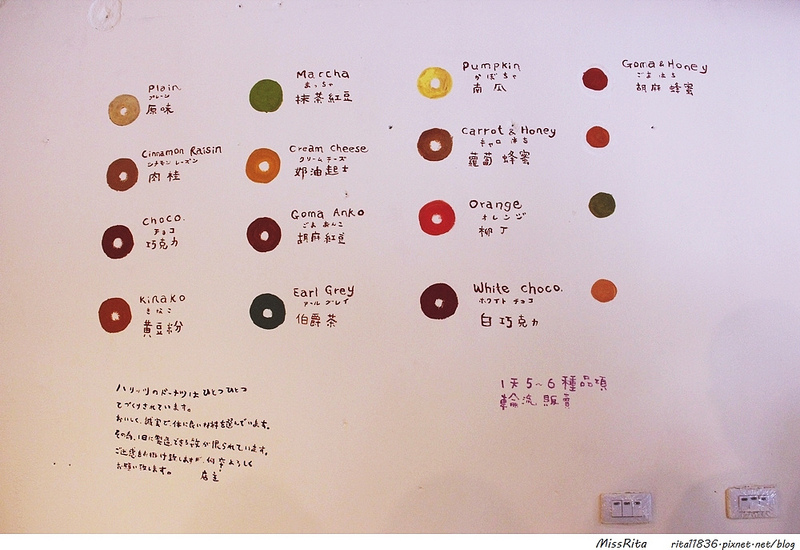 Plain
プレーン
原味
Cinnamon Raisin
シナモン レーズン
肉桂
Choco.
チョコ
巧克力
Kinako
きなこ
黄豆粉
Marcha
まっちゃ
抹茶紅豆
Cream Cheese
クリーム チーズ
奶油起士
Goma Anko
ごま あんこ
胡麻紅豆
Earl Grey
アール グレイ
伯爵茶
Pumpkin
かぼちゃ
南瓜
Carrot & Honey
キャロ はち
蘿蔔 蜂蜜
Orange
オレンジ
柳丁
White Choco.
ホワイト チョコ
白巧克力
Goma & Honey
ごま はち
胡麻 蜂蜜
ハリッツのドーナツは ひとつひとつ
てづくりされています。
おいしく、誠実で、体に良い材料を選んでいます。
その為、1日に製造できる数が限られています。
ご迷惑をお掛け致しますが、何卒よろしく
お願い致します。
店主
1天5~6種品項
輪流 販賣
MissRita
rita11836.pixnet.net/blog